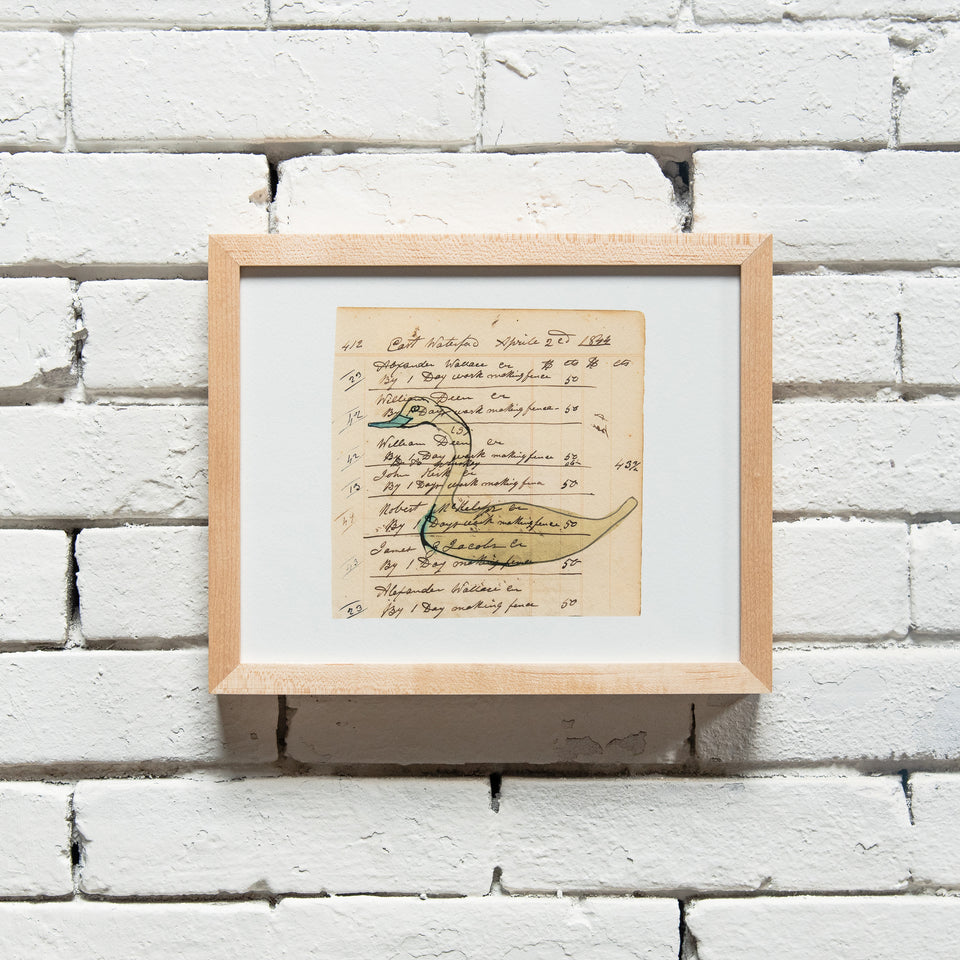 412 East Waterford Aprile 2cd 1844
Alexander Wallace cr $ cts $ cts
23 By 1 Day work making fence 50
William Deen cr
42 By 1 Day work making fence - 50
William Deen cr
42 By 1 Day work making fence 50
43¾
John Kirk cr
13 By 1 Days work making fence 50
Robert McKelups cr
By 1 Days work making fence 50
James G Jacobs cr
43 By 1 Day making fence 50
Alexander Wallace cr
23 By 1 Day making fence 50